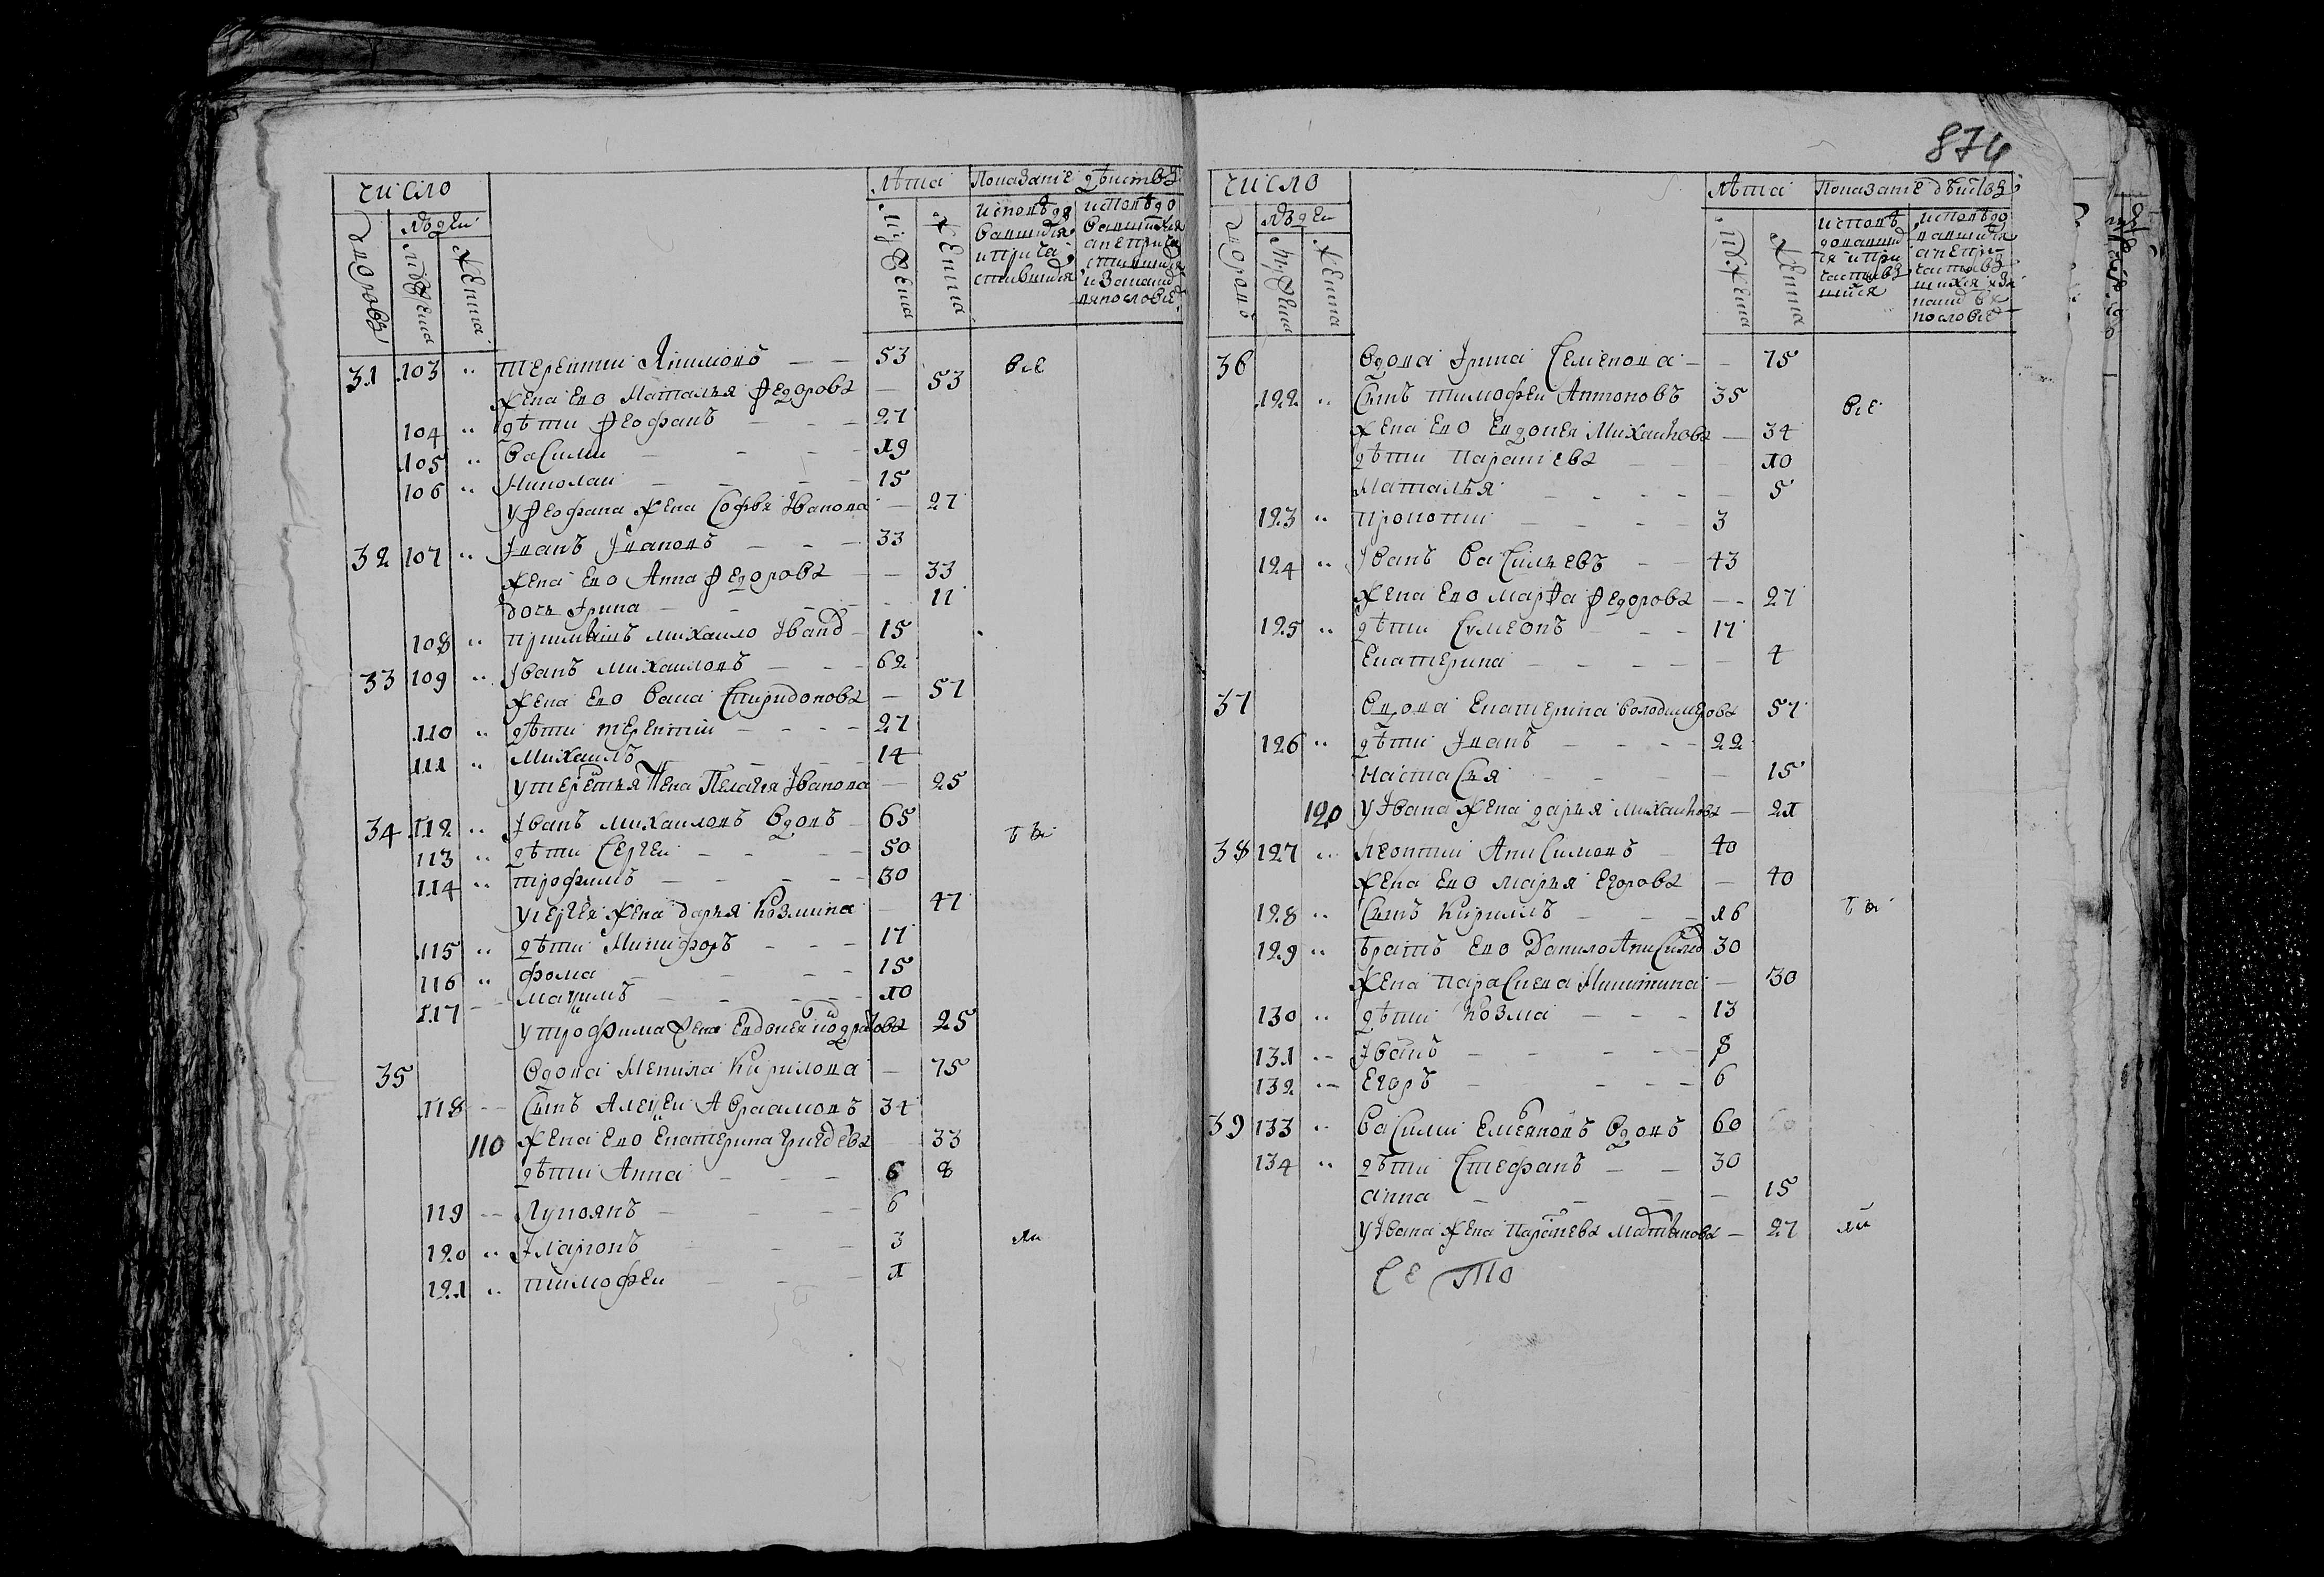 874
число
лѣта
Показание дѣиства
дворовъ
людеи
мужеска
женска
мужеска
женска
исповѣдо
вавшихся
и прича
стившихся
исповѣдо
вавшихся
а непріча
стившихся
31 103 " терентии Якимовъ — — 53 всѣ
жена ево Наталья Ѳедорова — 53
104 " дѣти Ѳеофанъ — — 27
105 " Василии — — — 19
106 " Николаи — — — 15
у Ѳеофана жена Софья Іванова — 27
32 107 " Іванъ Івановъ — — — 33
жена ево Анна Ѳедорова — — 33
дочь Ірина — — — 11
108 " приимышъ михаило Іванов — 15
33 109 " Іванъ михаиловъ — — — 62
жена ево Васа Спиридонова — 57
110 " дѣти терентии — — — 27
111 " Михаилъ — — — 14
у терѣтья жена Пелагея Іванова — 25
34 112 " Іванъ михаиловъ вдовъ — 65 бы
113 " дѣти Сергеи — — — 50
114 " трофимъ — — — 30
у сергея жена дарья Козмина — 47
115 " дѣти Никифоръ — — — 17
116 " фома — — — 15
117 — Мақимъ — — — 10
у трофима жена Евдокея кодратова 25
35 вдова Акилина Кирилова — 75
118 — Сынъ Алеѯеи Авраамовъ 34
110 жена ево Екатерина григорева 33
дѣти Анна — — — 6 8
119 — Лукоянъ — — — 6
120 " Іларионъ — — 3 ли
121 " тимофеи — — — 1
число
лѣта
Показание дѣиства
дворовъ
людеи
мужеска
женска
мужеска
женска
исповѣ
довавши
ся и при
частив
шиися
исповѣдо
вавшихся
а непри
частив
шихся
36 вдова Ірина Семенова — — 75
122 " Сынъ тимофеи Антоновъ 35 всѣ
жена ево Евдокея Михаилова — 34
дѣти Парасковья — — — 10
Наталья — — — — 5
123 " прокопии — — — 3
124 " Іванъ Васильевъ — — 43
жена ево марѳа Ѳедорова — — 27
125 " дѣти Симеонъ — — — 17
Екатерина — — — — — 4
37 вдова Екатерина володимерова 57
126 " дѣти Іванъ — — — — 22
Настасья — — — 15
120 у Івана жена дарья михаилова — 21
38 127 " Леонтии Анисимовъ — 40
жена ево марья егорова — 40
128 " Сынъ Кирилъ — — — 16 бы
129 " братъ ево Данило Анисимов 30
жена параскева Никитина — 30
130 " дѣти Козма — — — 13
131 — Іванъ — — — — — 8
132 — Егоръ — — — — 6
39 133 " Василии емеяновъ вдовъ 60
134 " дѣти Стефанъ — — 30
анна — — — — 15
у Івана жена Парасковья Матвѣиова — 27 ли
Село